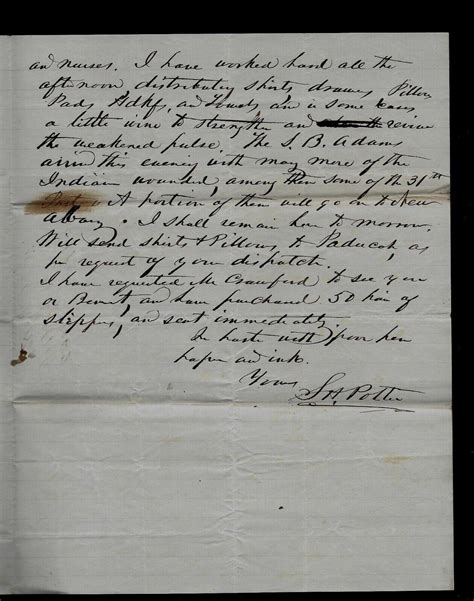 and nurses. I have worked hard all the
afternoon, distributing shirts, drawers, Pillows
Pads, Hdkfs, and Towels, and in some cases
a little wine to strengthen and revive
the weakened pulse. The S. B. Adams
arrived this evening with many more of the
Indiana wounded, among them some of the 31st
A portion of them will go on to New
Albany. I shall remain here to morrow.
Will send shirts & Pillows to Paducah, as
per request of your dispatch.
I have requested Mr Crawford to see you
or Bement, and have purchased 50 pair of
slippers, and sent immediately.
In haste with poor pen
paper and ink.
Yours S.H. Potter